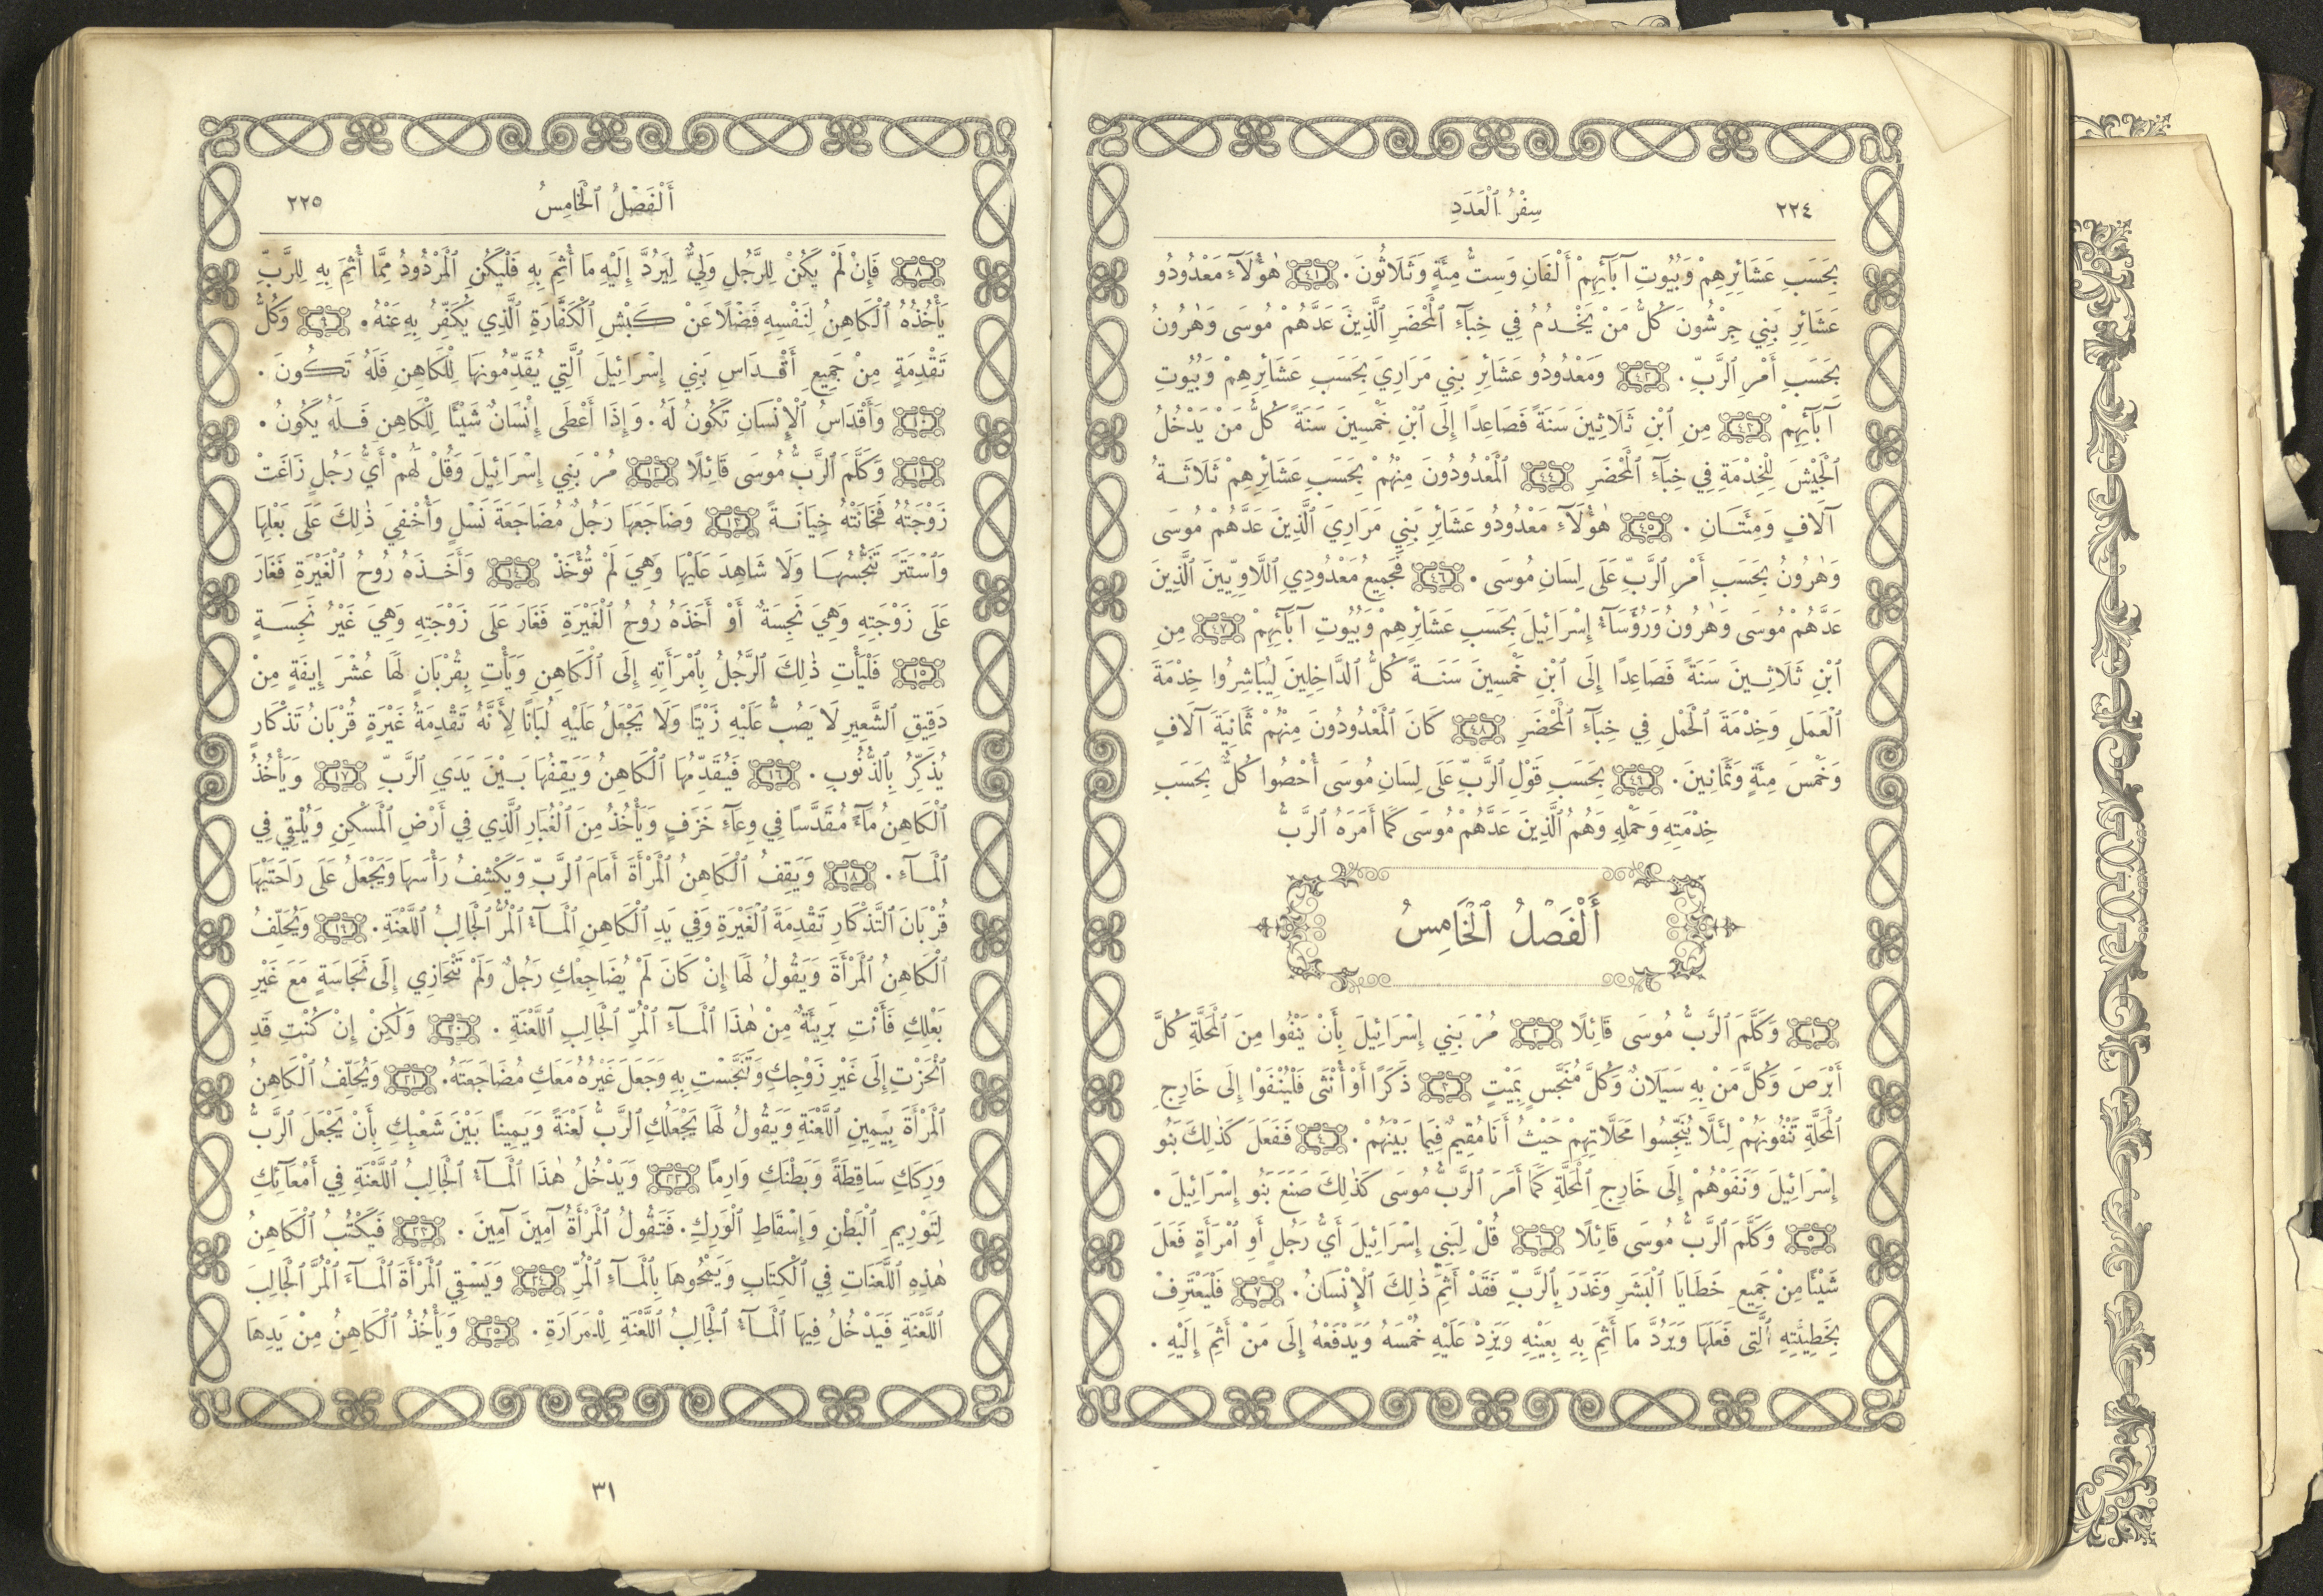 ٢٢٤
سِفْرُ ٱلْعَدَدِ
بِحَسَبِ عَشَائِرِهِمْ وَبُيُوتِ آبَآئِهِمْ أَلْفَانِ وَسِتُّ مِئَةٍ وَثَلَاثُونَ. ٤١ هٰؤُلَآءِ مَعْدُودُو
عَشَائِرِ بَنِي جِرْشُونَ كُلُّ مَنْ يَخْدُمُ فِي خِبَآءِ ٱلْمَحْضَرِ ٱلَّذِينَ عَدَّهُمْ مُوسَى وَهٰرُونُ
بِحَسَبِ أَمْرِ ٱلرَّبِّ. ٤٢ وَمَعْدُودُو عَشَائِرِ بَنِي مَرَارِيَ بِحَسَبِ عَشَائِرِهِمْ وَبُيُوتِ
آبَآئِهِمْ ٤٣ مِنِ ٱبْنِ ثَلَاثِينَ سَنَةً فَصَاعِدًا إِلَى ٱبْنِ خَمْسِينَ سَنَةً كُلُّ مَنْ يَدْخُلُ
ٱلْجَيْشَ لِلْخِدْمَةِ فِي خِبَآءِ ٱلْمَحْضَرِ ٤٤ ٱلْمَعْدُودُونَ مِنْهُمْ بِحَسَبِ عَشَائِرِهِمْ ثَلَاثَةُ
آلَافٍ وَمِئَتَانِ. ٤٥ هٰؤُلَآءِ مَعْدُودُو عَشَائِرِ بَنِي مَرَارِيَ ٱلَّذِينَ عَدَّهُمْ مُوسَى
وَهٰرُونُ بِحَسَبِ أَمْرِ ٱلرَّبِّ عَلَى لِسَانِ مُوسَى. ٤٦ فَجَمِيعُ مَعْدُودِي ٱللَّاوِيِّينَ ٱلَّذِينَ
عَدَّهُمْ مُوسَى وَهٰرُونُ وَرُؤَسَآءُ إِسْرَائِيلَ بِحَسَبِ عَشَائِرِهِمْ وَبُيُوتِ آبَآئِهِمْ ٤٧ مِنِ
ٱبْنِ ثَلَاثِينَ سَنَةً فَصَاعِدًا إِلَى ٱبْنِ خَمْسِينَ سَنَةً كُلُّ ٱلدَّاخِلِينَ لِيُبَاشِرُوا خِدْمَةَ
ٱلْعَمَلِ وَخِدْمَةَ ٱلْحَمْلِ فِي خِبَآءِ ٱلْمَحْضَرِ ٤٨ كَانَ ٱلْمَعْدُودُونَ مِنْهُمْ ثَمَانِيَةَ آلَافٍ
وَخَمْسَ مِئَةٍ وَثَمَانِينَ. ٤٩ بِحَسَبِ قَوْلِ ٱلرَّبِّ عَلَى لِسَانِ مُوسَى أُحْصُوا كُلٌّ بِحَسَبِ
خِدْمَتِهِ وَحَمْلِهِ وَهُمُ ٱلَّذِينَ عَدَّهُمْ مُوسَى كَمَا أَمَرَهُ ٱلرَّبُّ
أَلْفَصْلُ ٱلْخَامِسُ
١ وَكَلَّمَ ٱلرَّبُّ مُوسَى قَائِلًا ٢ مُرْ بَنِي إِسْرَائِيلَ بِأَنْ يَنْفُوا مِنَ ٱلْمَحَلَّةِ كُلَّ
أَبْرَصَ وَكُلَّ مَنْ بِهِ سَيَلَانٌ وَكُلَّ مُنَجَّسٍ بِمَيْتٍ ٣ ذَكَرًا أَوْ أُنْثَى فَلْيُنْفَوْا إِلَى خَارِجِ
ٱلْمَحَلَّةِ تَنْفُونَهُمْ لِئَلَّا يُنَجِّسُوا مَحَلَّاتِهِمْ حَيْثُ أَنَا مُقِيمٌ فِيمَا بَيْنَهُمْ. ٤ فَفَعَلَ كَذٰلِكَ بَنُو
إِسْرَائِيلَ وَنَفَوْهُمْ إِلَى خَارِجِ ٱلْمَحَلَّةِ كَمَا أَمَرَ ٱلرَّبُّ مُوسَى كَذٰلِكَ صَنَعَ بَنُو إِسْرَائِيلَ.
٥ وَكَلَّمَ ٱلرَّبُّ مُوسَى قَائِلًا ٦ قُلْ لِبَنِي إِسْرَائِيلَ أَيُّ رَجُلٍ أَوِ ٱمْرَأَةٍ فَعَلَ
شَيْئًا مِنْ جَمِيعِ خَطَايَا ٱلْبَشَرِ وَغَدَرَ بِٱلرَّبِّ فَقَدْ أَثِمَ ذٰلِكَ ٱلْإِنْسَانُ. ٧ فَلْيَعْتَرِفْ
بِخَطِيئَتِهِ ٱلَّتِي فَعَلَهَا وَيَرُدَّ مَا أَثِمَ بِهِ بِعَيْنِهِ وَيَزِدْ عَلَيْهِ خُمْسَهُ وَيَدْفَعْهُ إِلَى مَنْ أَثِمَ إِلَيْهِ.
أَلْفَصْلُ ٱلْخَامِسُ
٢٢٥
٨ فَإِنْ لَمْ يَكُنْ لِلرَّجُلِ وَلِيٌّ لِيَرُدَّ إِلَيْهِ مَا أُثِمَ بِهِ فَلْيَكُنِ ٱلْمَرْدُودُ مِمَّا أُثِمَ بِهِ لِلرَّبِّ
يَأْخُذُهُ ٱلْكَاهِنُ لِنَفْسِهِ فَضْلًا عَنْ كَبْشِ ٱلْكَفَّارَةِ ٱلَّذِي يُكَفِّرُ بِهِ عَنْهُ. ٩ وَكُلُّ
تَقْدِمَةٍ مِنْ جَمِيعِ أَقْدَاسِ بَنِي إِسْرَائِيلَ ٱلَّتِي يُقَدِّمُونَهَا لِلْكَاهِنِ فَلَهُ تَكُونَ.
١٠ وَأَقْدَاسُ ٱلْإِنْسَانِ تَكُونُ لَهُ. وَإِذَا أَعْطَى إِنْسَانٌ شَيْئًا لِلْكَاهِنِ فَلَهُ يَكُونُ.
١١ وَكَلَّمَ ٱلرَّبُّ مُوسَى قَائِلًا ١٢ مُرْ بَنِي إِسْرَائِيلَ وَقُلْ لَهُمْ أَيُّ رَجُلٍ زَاغَتْ
زَوْجَتُهُ فَخَانَتْهُ خِيَانَةً ١٣ وَضَاجَعَهَا رَجُلٌ مُضَاجَعَةَ نَسْلٍ وَأُخْفِيَ ذٰلِكَ عَلَى بَعْلِهَا
وَٱسْتَتَرَ تَنَجُّسُهَا وَلَا شَاهِدَ عَلَيْهَا وَهِيَ لَمْ تُؤْخَذْ ١٤ وَأَخَذَهُ رُوحُ ٱلْغَيْرَةِ فَغَارَ
عَلَى زَوْجَتِهِ وَهِيَ نَجِسَةٌ أَوْ أَخَذَهُ رُوحُ ٱلْغَيْرَةِ فَغَارَ عَلَى زَوْجَتِهِ وَهِيَ غَيْرُ نَجِسَةٍ
١٥ فَلْيَأْتِ ذٰلِكَ ٱلرَّجُلُ بِٱمْرَأَتِهِ إِلَى ٱلْكَاهِنِ وَيَأْتِ بِقُرْبَانٍ لَهَا عُشْرَ إِيفَةٍ مِنْ
دَقِيقِ ٱلشَّعِيرِ لَا يَصُبُّ عَلَيْهِ زَيْتًا وَلَا يَجْعَلُ عَلَيْهِ لُبَانًا لِأَنَّهُ تَقْدِمَةُ غَيْرَةٍ قُرْبَانُ تَذْكَارٍ
يُذَكِّرُ بِٱلذُّنُوبِ. ١٦ فَيُقَدِّمُهَا ٱلْكَاهِنُ وَيَقِفُهَا بَيْنَ يَدَيِ ٱلرَّبِّ ١٧ وَيَأْخُذُ
ٱلْكَاهِنُ مَآءً مُقَدَّسًا فِي وِعَآءِ خَزَفٍ وَيَأْخُذُ مِنَ ٱلْغُبَارِ ٱلَّذِي فِي أَرْضِ ٱلْمَسْكِنِ وَيُلْقِي فِي
ٱلْمَآءِ. ١٨ وَيَقِفُ ٱلْكَاهِنُ ٱلْمَرْأَةَ أَمَامَ ٱلرَّبِّ وَيَكْشِفُ رَأْسَهَا وَيَجْعَلُ عَلَى رَاحَتَيْهَا
قُرْبَانَ ٱلتَّذْكَارِ تَقْدِمَةَ ٱلْغَيْرَةِ وَفِي يَدِ ٱلْكَاهِنِ ٱلْمَآءُ ٱلْمُرُّ ٱلْجَالِبُ ٱللَّعْنَةِ. ١٩ وَيُحَلِّفُ
ٱلْكَاهِنُ ٱلْمَرْأَةَ وَيَقُولُ لَهَا إِنْ كَانَ لَمْ يُضَاجِعْكِ رَجُلٌ وَلَمْ تَنْحَازِي إِلَى نَجَاسَةٍ مَعَ غَيْرِ
بَعْلِكِ فَأَنْتِ بَرِيئَةٌ مِنْ هٰذَا ٱلْمَآءِ ٱلْمُرِّ ٱلْجَالِبِ ٱللَّعْنَةِ. ٢٠ وَلٰكِنْ إِنْ كُنْتِ قَدِ
ٱنْحَزْتِ إِلَى غَيْرِ زَوْجِكِ وَتَنَجَّسْتِ بِهِ وَجَعَلَ غَيْرُهُ مَعَكِ مُضَاجَعَتَهُ. ٢١ وَيُحَلِّفُ ٱلْكَاهِنُ
ٱلْمَرْأَةَ بِيَمِينِ ٱللَّعْنَةِ وَيَقُولُ لَهَا يَجْعَلُكِ ٱلرَّبُّ لَعْنَةً وَيَمِينًا بَيْنَ شَعْبِكِ بِأَنْ يَجْعَلَ ٱلرَّبُّ
وَرِكَكِ سَاقِطَةً وَبَطْنَكِ وَارِمًا ٢٢ وَيَدْخُلُ هٰذَا ٱلْمَآءُ ٱلْجَالِبُ ٱللَّعْنَةِ فِي أَمْعَآئِكِ
لِتَوْرِيمِ ٱلْبَطْنِ وَإِسْقَاطِ ٱلْوَرِكِ. فَتَقُولُ ٱلْمَرْأَةُ آمِينَ آمِينَ. ٢٣ فَيَكْتُبُ ٱلْكَاهِنُ
هٰذِهِ ٱللَّعَنَاتِ فِي ٱلْكِتَابِ وَيَمْحُوهَا بِٱلْمَآءِ ٱلْمُرِّ ٢٤ وَيَسْقِي ٱلْمَرْأَةَ ٱلْمَآءَ ٱلْمُرَّ ٱلْجَالِبَ
ٱللَّعْنَةِ فَيَدْخُلُ فِيهَا ٱلْمَآءُ ٱلْجَالِبُ ٱللَّعْنَةِ لِلْمَرَارَةِ. ٢٥ وَيَأْخُذُ ٱلْكَاهِنُ مِنْ يَدِهَا
٣١